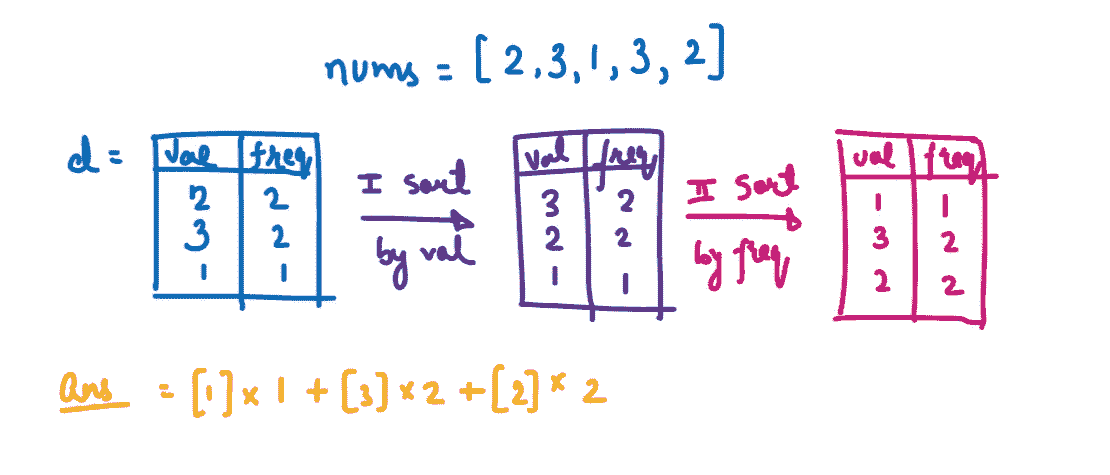 nums = [2,3,1,3,2]
d =
val freq
2 2
3 2
1 1
I sort
by val
val freq
3 2
2 2
1 1
II sort
by freq
val freq
1 1
3 2
2 2
Ans = [1] × 1 + [3] × 2 + [2] × 2